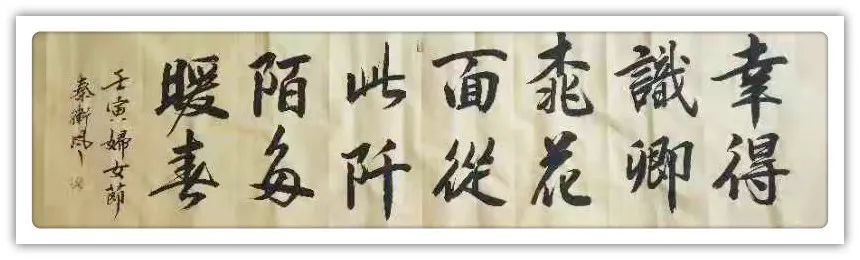 幸得
識卿
桃花
面從
此阡
陌多
暖春
壬寅婦女節
秦衛風